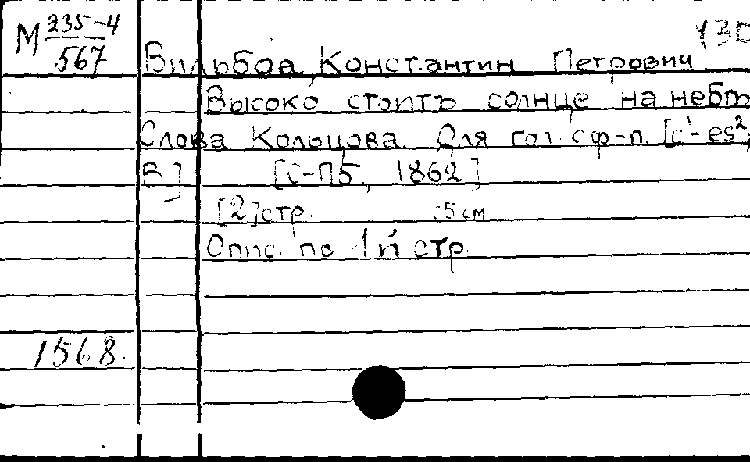 М 235-4
567
Вильбоа, Константин Петрович
Высоко стоитъ солнце на небѣ
Слова Кольцова. Для гол. с ф-п. [c'-es²,
B.] [С-Пб, 1862]
[2] стр. см
Опис. по 1й стр.
1568.